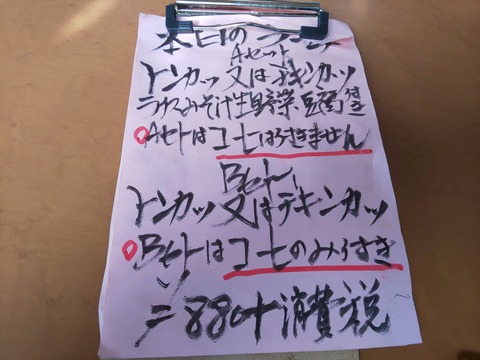 本日のランチ
Aセット
トンカツ 又は チキンカツ
ライスみそ汁生野菜 豆腐付き
Aセットはコーヒはつきません
Bセット
トンカツ 又は チキンカツ
Bセットはコーヒのみつき
880+消費税